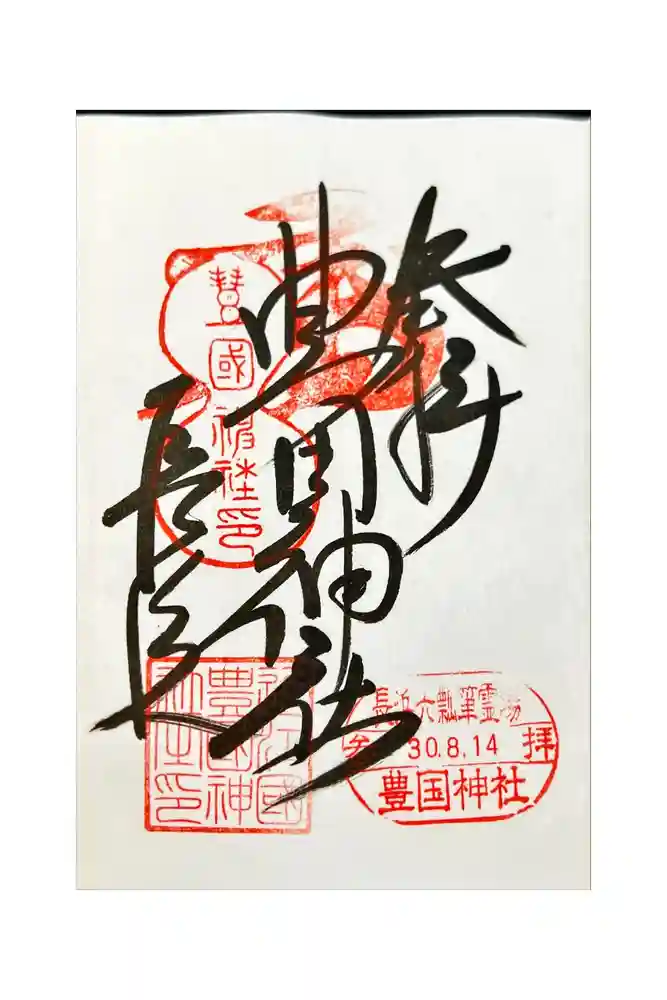 奉拝
豊国神社
長浜
豐國神社印
近江國
豐國神
社之印
長浜六瓢箪霊場
参 30.8.14 拝
豊国神社